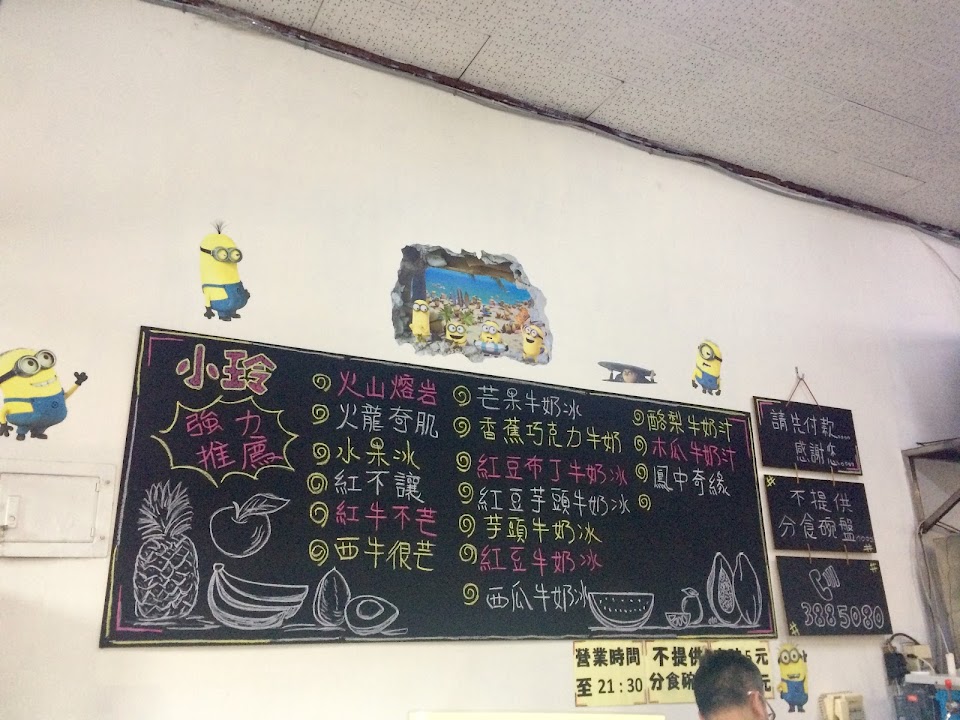 小玲
強力
推薦
火山熔岩
火龍奇肌
水果冰
紅不讓
紅牛不芒
西牛很芒
芒果牛奶冰
香蕉巧克力牛奶
紅豆布丁牛奶冰
紅豆芋頭牛奶冰
芋頭牛奶冰
紅豆牛奶冰
西瓜牛奶冰
酪梨牛奶汁
木瓜牛奶汁
鳳中奇緣
請先付款....
感謝您
不提供
分食碗盤
3885080
營業時間
至 21:30
不提供
分食碗
5元
元